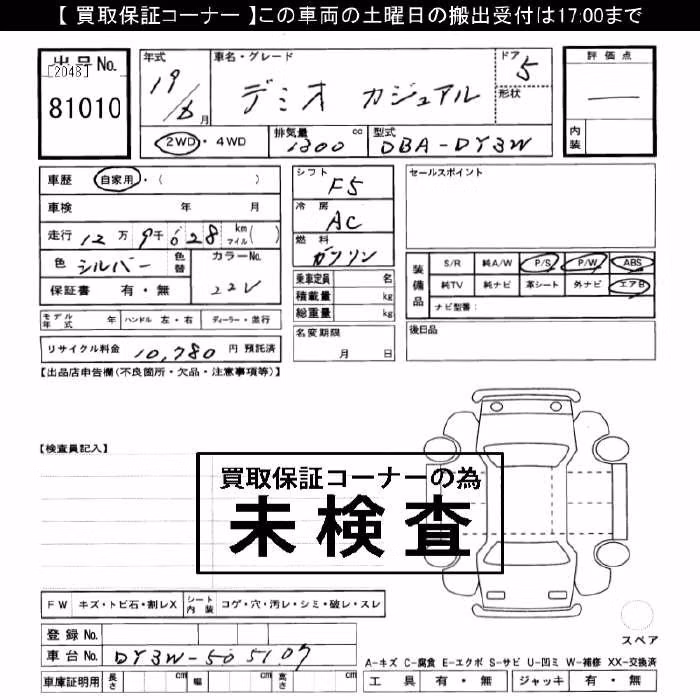 【 買取保証コーナー 】この車両の土曜日の搬出受付は17:00まで
出品No.
[2048]
81010
年式
19/6月
車名・グレード
デミオ カジュアル
ドア 5
形状
2WD・4WD
排気量 1300 cc
型式 DBA-DY3W
評価点
—
内装
車歴 自家用・( )
車検 年 月
走行 12万9千628 km マイル( )
色 シルバー 色替
カラーNo. 22V
保証書 有・無
シフト F5
冷房 AC
燃料 ガソリン
乗車定員 名
積載量 kg
総重量 kg
名変期限
月 日
セールスポイント
装備品
S/R 純A/W P/S P/W ABS
純TV 純ナビ 革シート 外ナビ エアB
ナビ型番:
後日品
モデル年式 年 ハンドル 左・右 ディーラー・並行
リサイクル料金 10,780 円 預託済
【出品店申告欄(不良箇所・欠品・注意事項等)】
【検査員記入】
買取保証コーナーの為
未検査
FW キズ・トビ石・割レX シート内装 コゲ・穴・汚レ・シミ・破レ・スレ
スペア
登録No.
車台No. DY3W-505107
A-キズ C-腐食 E-エクボ S-サビ U-凹ミ W-補修 XX-交換済
車庫証明用 長さ cm 幅 cm 高さ cm
工具 有・無 ジャッキ 有・無